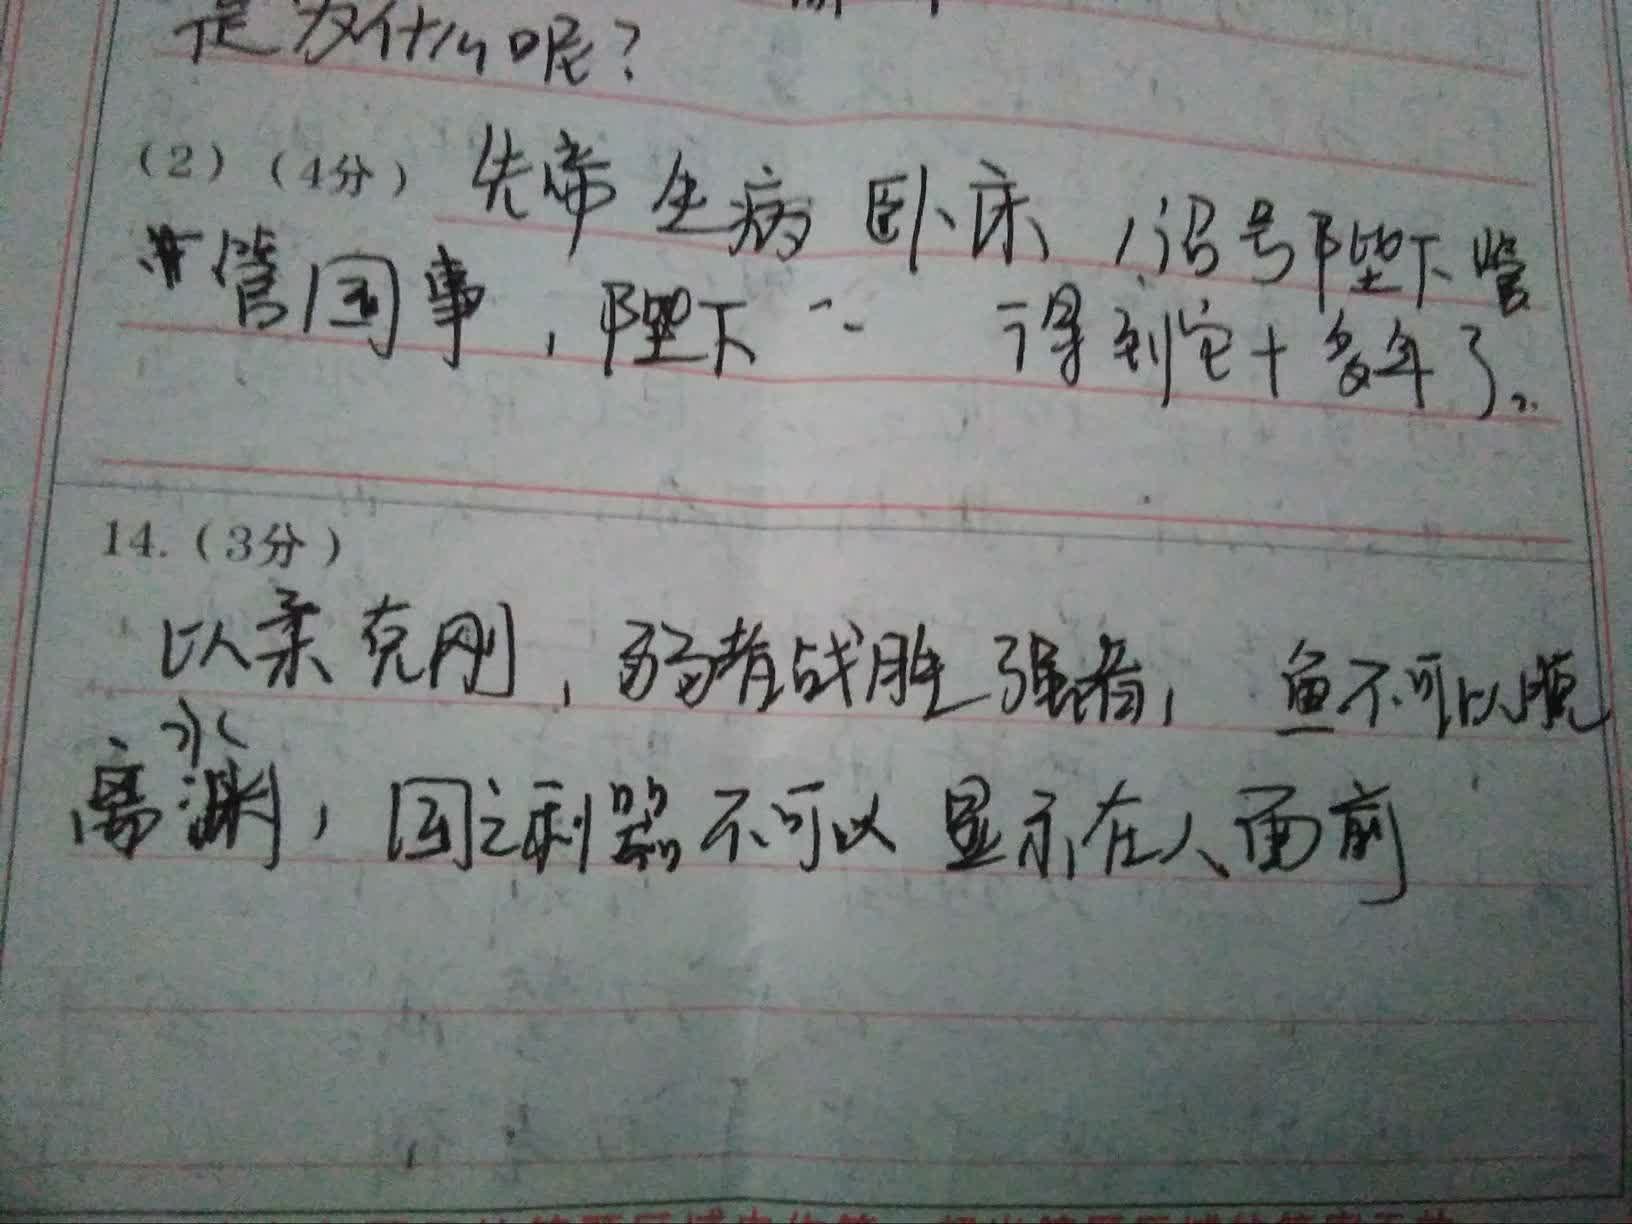 是为什么呢？
(2)(4分) 先帝生病卧床，诏号陛下管
管国事，陛下 得到它十多年了。
14.(3分)
以柔克刚，弱者战胜强者，鱼不可以脱
离水渊，国之利器不可以显示在人面前